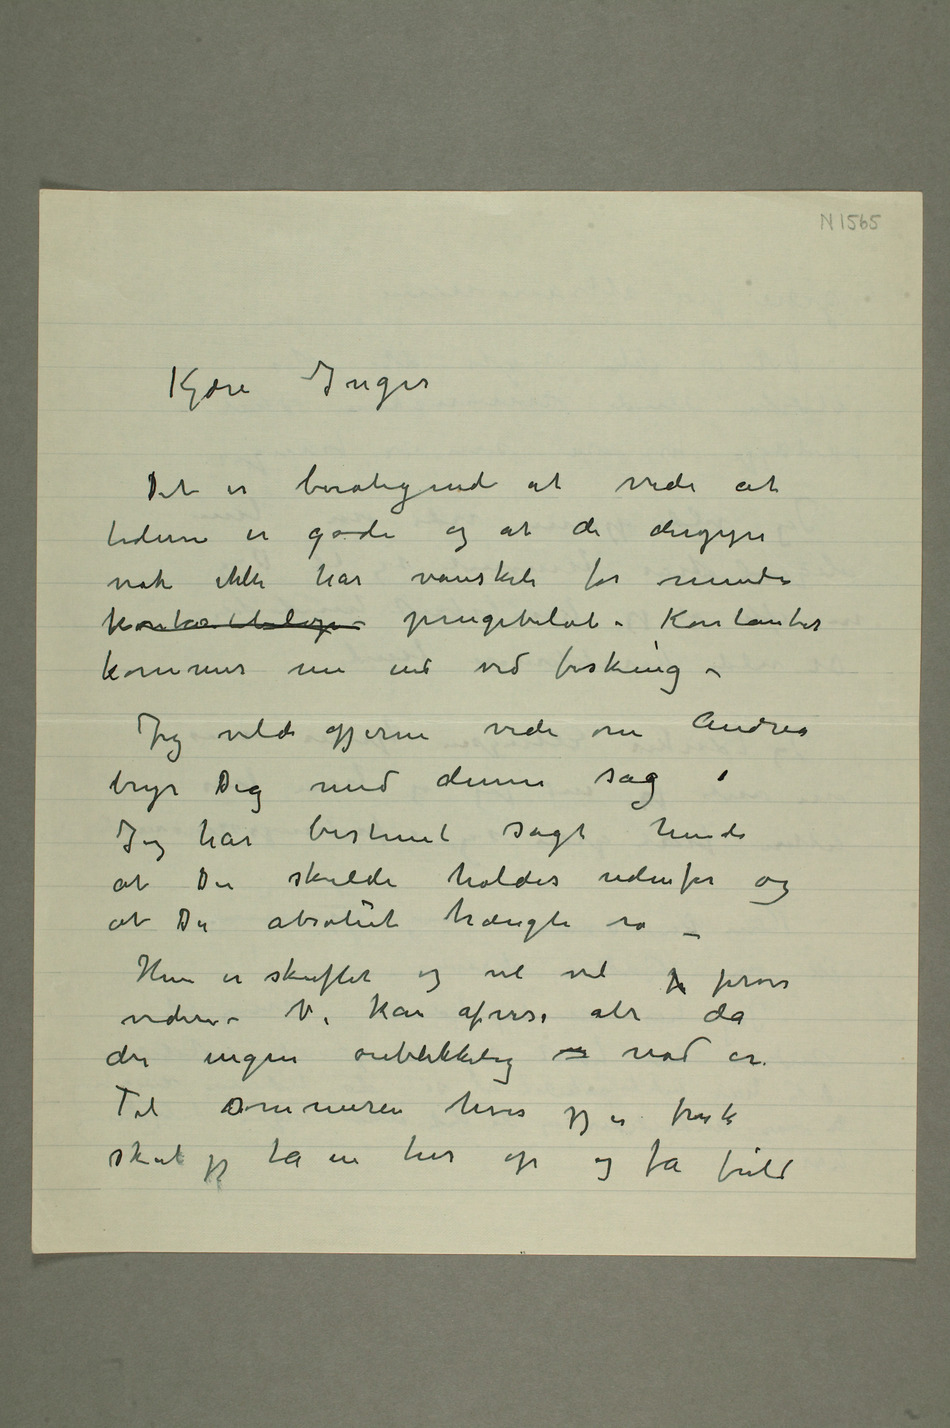 N 1565
Kjære Inger
Det er beroligende at vide at
tiderne er gode og at de deroppe
nok ikke har vanskeli for mindre
kontantbeløp pengebeløb – Kontanter
kommer nu ind ved fiskeing –
Jeg vilde gjerne vide om Andrea
bryr Dig med denne sag.
Jeg har bestemt sagt hende
at Du skulde holdes udenfor og
at Du absolut trængte ro –
Hun er skuflet og vil vel prøve
videre – Vi kan afvise alt da
der ingen øieblikkelig nød er.
Til sommeren hvis jeg er frisk
skal jeg ta en tur op og få fuld